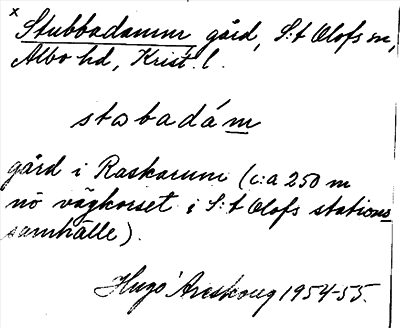 x Stubbadamm gård, S:t Olofs sn,
Albo hd, Krist. l.
stabadám
gård i Raskarum (c:a 250 m
nö vägkorset i S:t Olofs stations
samhälle).
Hugo Areskoug 1954-55.